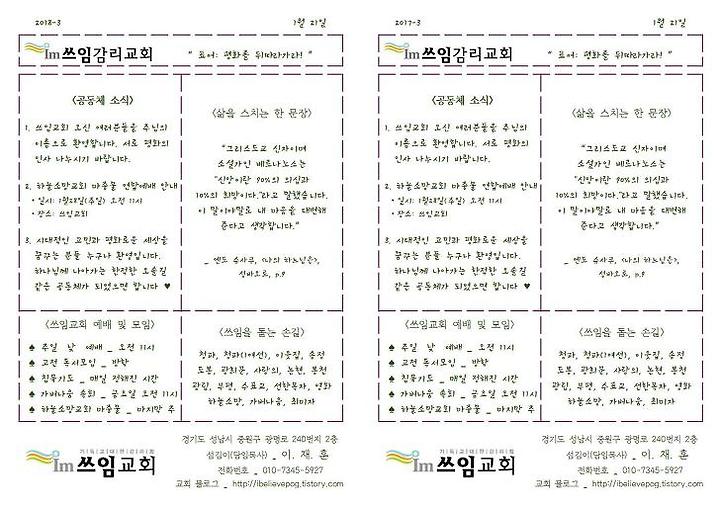 2018-3
1월 21일
Im쓰임감리교회
" 표어: 평화를 뒤따라가라! "
<공동체 소식>
1. 쓰임교회 오신 여러분들을 주님의
이름으로 환영합니다. 서로 평화의
인사 나누시기 바랍니다.
2. 하늘소망교회 마중물 연합예배 안내
• 일시: 1월28일(주일) 오전 11시
• 장소: 쓰임교회
3. 시대적인 고민과 평화로운 세상을
꿈꾸는 분들 누구나 환영입니다.
하나님께 나아가는 한적한 오솔길
같은 공동체가 되었으면 합니다 ♥
<삶을 스치는 한 문장>
"그리스도교 신자이며
소설가인 베르나노스는
"신앙이란 90%의 의심과
10%의 희망이다."라고 말했습니다.
이 말이야말로 내 마음을 대변해
준다고 생각합니다."
_ 엔도 슈사쿠, <나의 하느님은>,
성바오로, p.9
<쓰임교회 예배 및 모임>
♠ 주일 낮 예배 _ 오전 11시
♠ 고전 독서모임 _ 방학
♠ 침묵기도 _ 매일 정해진 시간
♠ 가버나움 속회 _ 금요일 오전 11시
♠ 하늘소망교회 마중물 _ 마지막 주
<쓰임을 돕는 손길>
청파, 청파(1여선), 이웃길, 송전
도봉, 광희문, 사랑의, 논현, 봉천
광림, 부평, 수표교, 선한목자, 영화
하늘소망, 가버나움, 최미자
기독교대한감리회
Im쓰임교회
경기도 성남시 중원구 광명로 240번지 2층
섬김이(담임목사) _ 이. 재. 훈
전화번호 _ 010-7345-5927
교회 블로그 _ http://ibelievepog.tistory.com
2017-3
1월 21일
Im쓰임감리교회
" 표어: 평화를 뒤따라가라! "
<공동체 소식>
1. 쓰임교회 오신 여러분들을 주님의
이름으로 환영합니다. 서로 평화의
인사 나누시기 바랍니다.
2. 하늘소망교회 마중물 연합예배 안내
• 일시: 1월28일(주일) 오전 11시
• 장소: 쓰임교회
3. 시대적인 고민과 평화로운 세상을
꿈꾸는 분들 누구나 환영입니다.
하나님께 나아가는 한적한 오솔길
같은 공동체가 되었으면 합니다 ♥
<삶을 스치는 한 문장>
"그리스도교 신자이며
소설가인 베르나노스는
"신앙이란 90%의 의심과
10%의 희망이다."라고 말했습니다.
이 말이야말로 내 마음을 대변해
준다고 생각합니다."
_ 엔도 슈사쿠, <나의 하느님은>,
성바오로, p.9
<쓰임교회 예배 및 모임>
♠ 주일 낮 예배 _ 오전 11시
♠ 고전 독서모임 _ 방학
♠ 침묵기도 _ 매일 정해진 시간
♠ 가버나움 속회 _ 금요일 오전 11시
♠ 하늘소망교회 마중물 _ 마지막 주
<쓰임을 돕는 손길>
청파, 청파(1여선), 이웃길, 송전
도봉, 광희문, 사랑의, 논현, 봉천
광림, 부평, 수표교, 선한목자, 영화
하늘소망, 가버나움, 최미자
기독교대한감리회
Im쓰임교회
경기도 성남시 중원구 광명로 240번지 2층
섬김이(담임목사) _ 이. 재. 훈
전화번호 _ 010-7345-5927
교회 블로그 _ http://ibelievepog.tistory.com